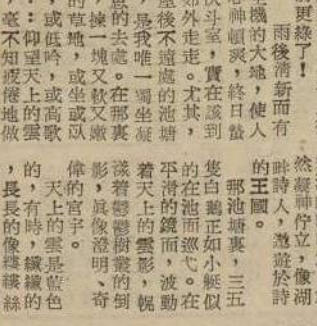 更綠了！
雨後清新而有
生機的大地，使人
心神頓爽，終日蟄
伏斗室，實在該到
郊外走走。尤其，
屋後不遠處的池塘
，是我唯一獨坐凝
思的去處。在那裏
，揀一塊又軟又嫩
的草地，或坐或以
，或低吟，或高歌
：：仰望天上的雲
，毫不知疲倦地做
然凝神佇立，像湖
畔詩人，遨遊於詩
的王國。
那池塘裏，三五
隻白鵝正如小艇似
的在池面巡弋。在
平滑的鏡面，波動
着天上的雲影，幌
漾着鬱鬱樹叢的倒
影，眞像澄明、奇
偉的宮宇。
天上的雲是藍色
的，有時，纖纖的
，長長的像縷縷絲